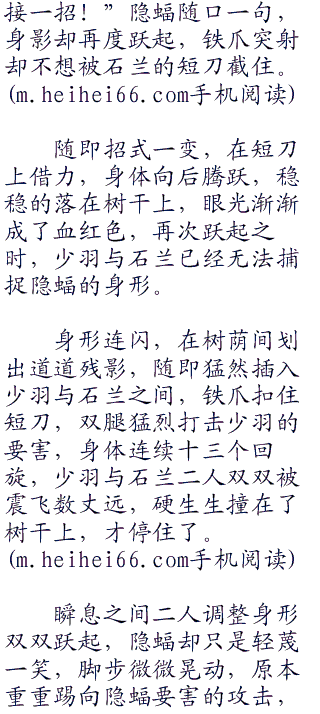 接一招！”隐蝠随口一句，
身影却再度跃起，铁爪突射
却不想被石兰的短刀截住。
(m.heihei66.com手机阅读)
随即招式一变，在短刀
上借力，身体向后腾跃，稳
稳的落在树干上，眼光渐渐
成了血红色，再次跃起之
时，少羽与石兰已经无法捕
捉隐蝠的身形。
身形连闪，在树荫间划
出道道残影，随即猛然插入
少羽与石兰之间，铁爪扣住
短刀，双腿猛烈打击少羽的
要害，身体连续十三个回
旋，少羽与石兰二人双双被
震飞数丈远，硬生生撞在了
树干上，才停住了。
(m.heihei66.com手机阅读)
瞬息之间二人调整身形
双双跃起，隐蝠却只是轻蔑
一笑，脚步微微晃动，原本
重重踢向隐蝠要害的攻击，